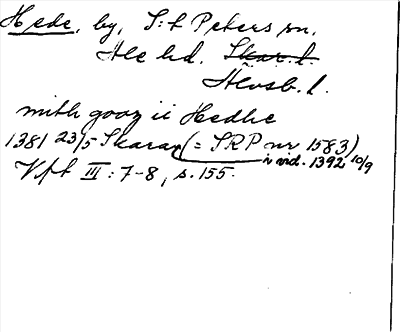 Hede, by, S:t Peters sn.
Ale hd. Skar. l.
Älvsb. l.
mith gooz ii Hedhe
1381 23/5 Skarap (= SRP nr 1583)
i vid. 1392 10/9
Vft III : 7-8, s. 155.